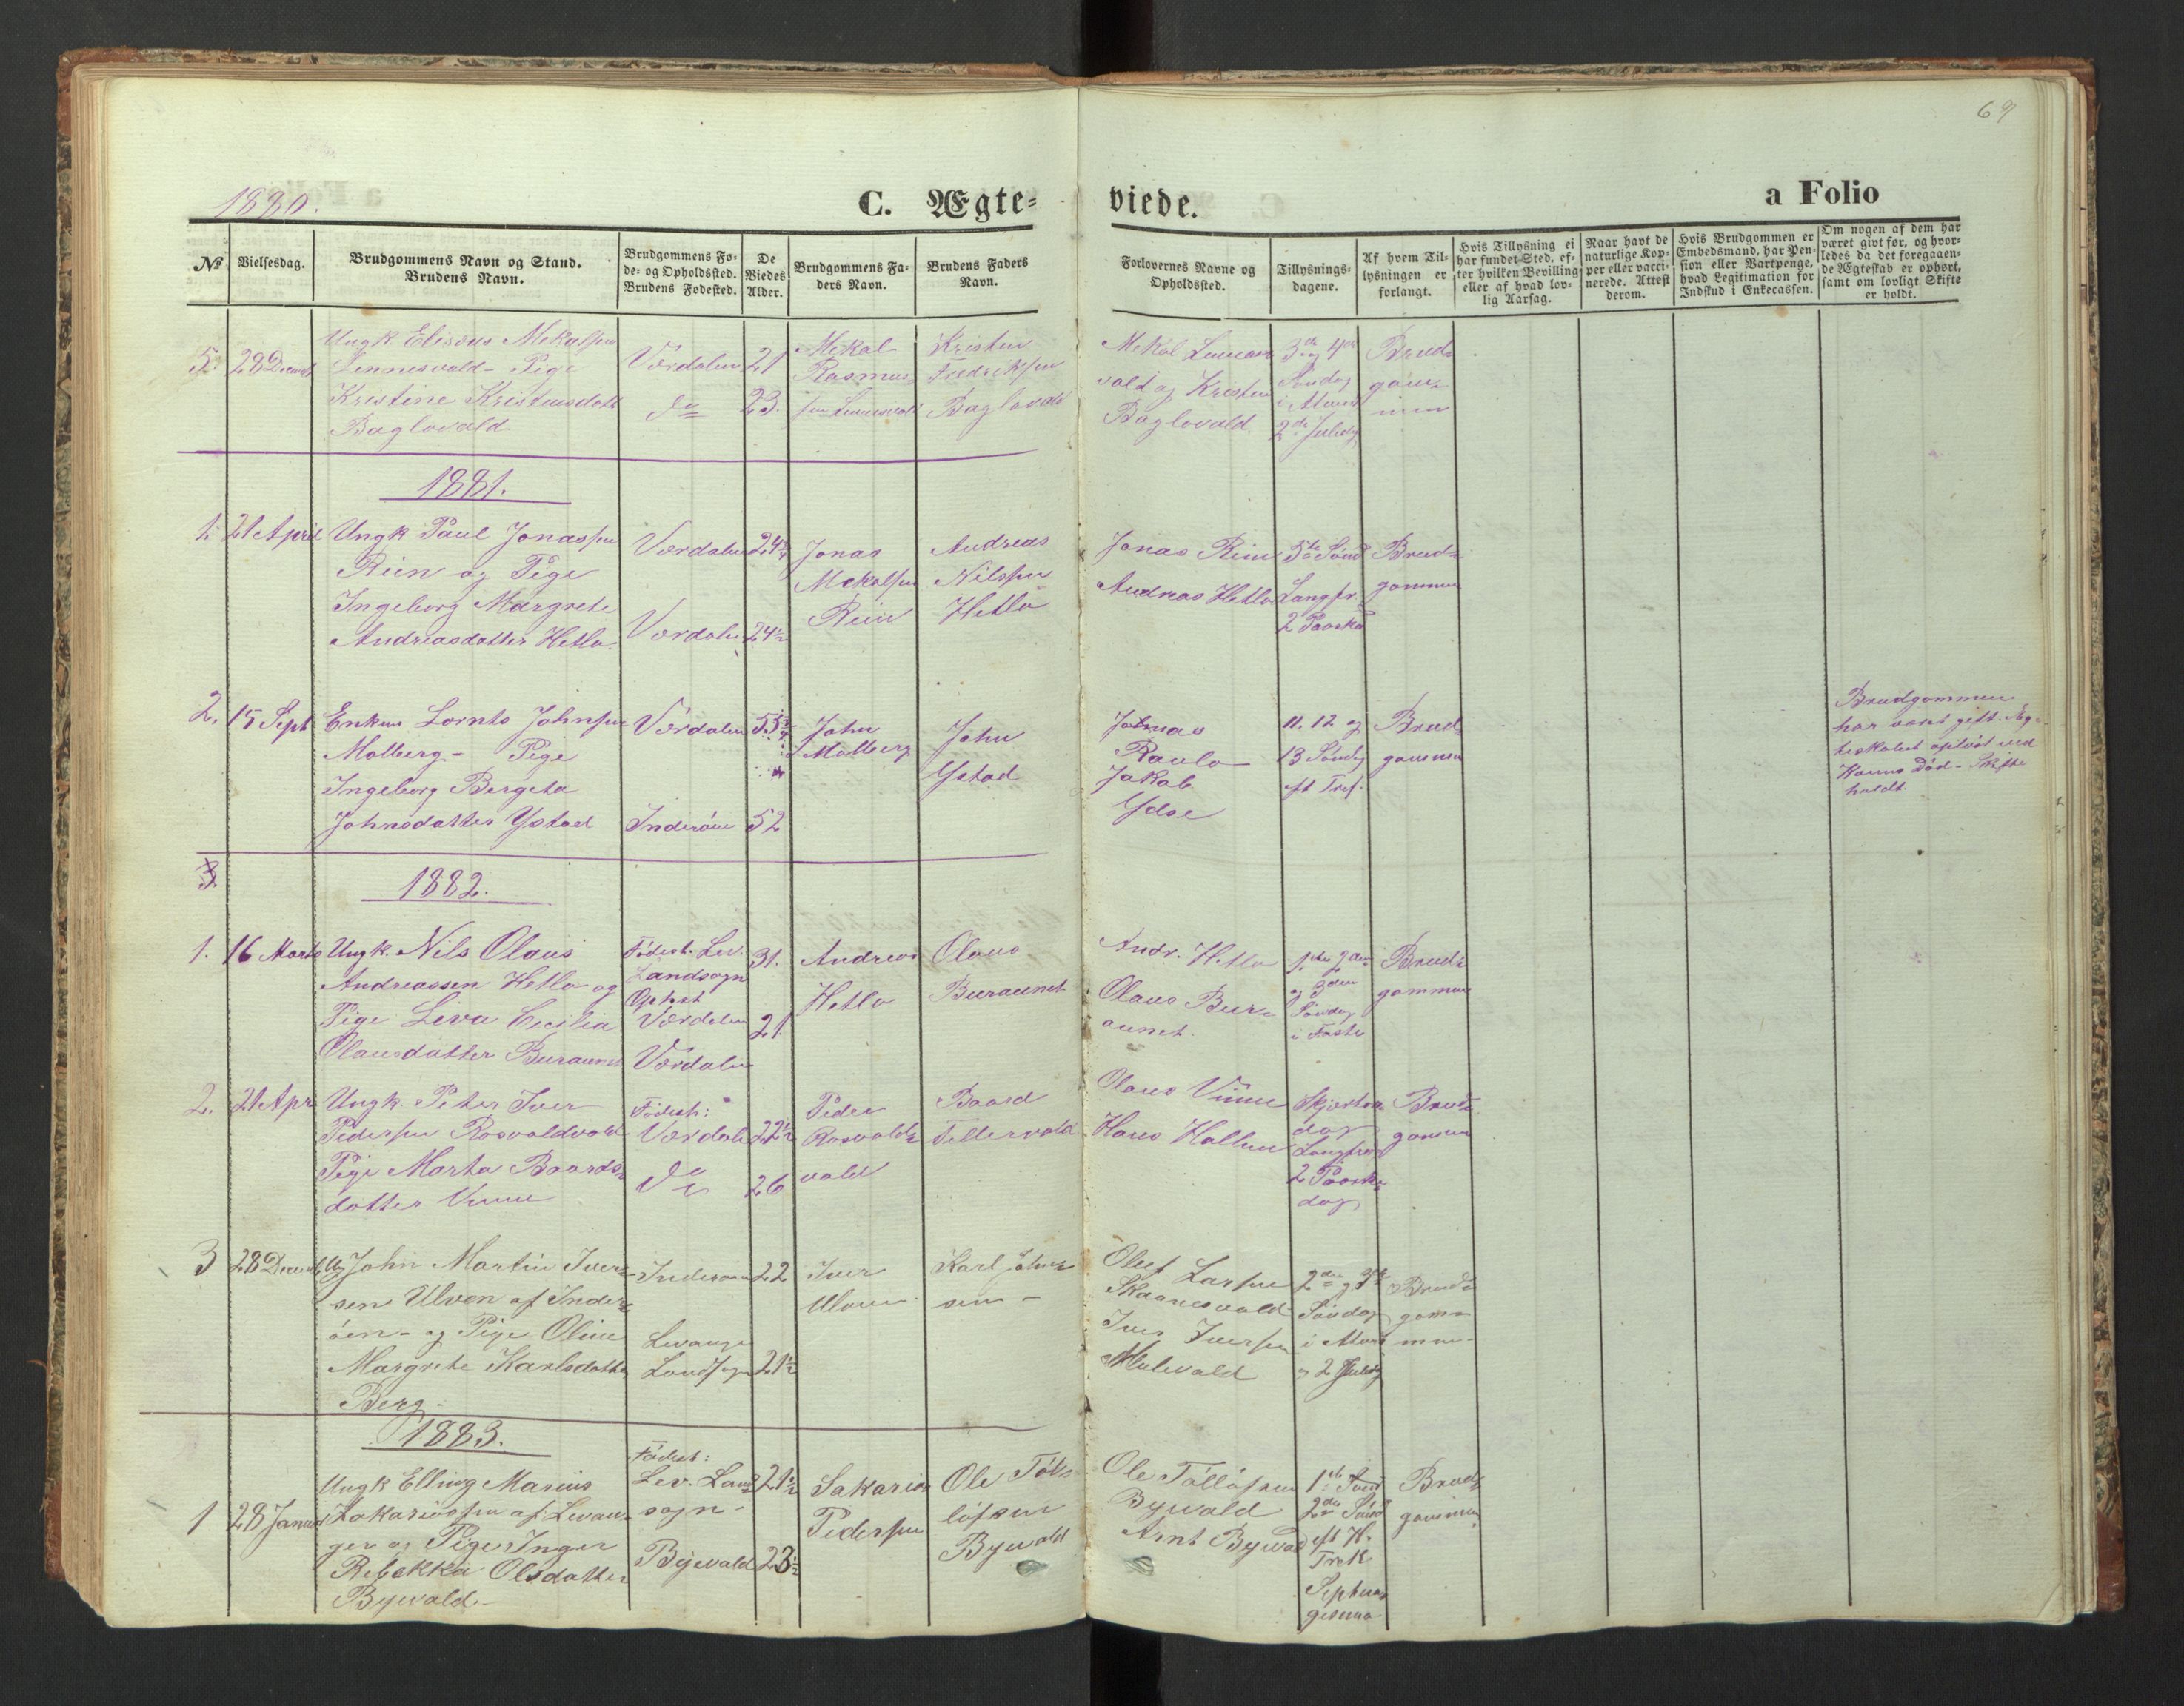 69
1880.
C. Ægte=
viede.
a Folio
No
Vielsesdag.
Brudgommens Navn og Stand.
Brudens Navn.
Brudgommens Fø-
de- og Opholdssted.
Brudens Fødested.
De
Viedes
Alder.
Brudgommens Fa-
ders Navn.
Brudens Faders
Navn.
Forlovernes Navne og
Opholdssted.
Tillysnings-
dagene.
Af hvem Til-
lysningen er
forlangt.
Hvis Tillysning ei
har fundet Sted, ef-
ter hvilken Bevilling
eller af hvad lov-
lig Aarsag.
Naar havt de
naturlige Kop-
per eller vacci-
nerede. Attest
derom.
Hvis Brudgommen er
Embedsmand, har Pen-
sion eller Vartpenge,
hvad Legitimation for
Indskud i Enkecassen.
Om nogen af dem har
været givt før, og hvor-
ledes da det foregaaen-
de Ægteskab er ophørt,
samt om lovligt Skifte
er holdt.
5. 28 Decemb
Ungk Eliseus Mekalsen
Lennesvald - Pige
Kristine Kristensdatt
Baglovald
Værdalen
do
21
23.
Mekal
Rasmus-
sen Lennesvald
Kristen
Fredriksen
Baglovald
Mekal Lennes
vald og Kristen
Baglovald
3de og 4de
Søndag
i Advent
2de Juledag
Brud-
gom-
men
1881.
1. 21 April
Ungk Paul Jonassen
Rein og Pige
Ingeborg Margrete
Andreasdatter Hetlo.
Værdalen
Værdalen
24¾
24½
Jonas
Mekalsen
Rein
Andreas
Nilsen
Hetlo
Jonas Rein
Andreas Hetlo
5te Sønd
Langfr.
2 Paaskd
Brud-
gommen
2. 15 Sept
Enkem Lornts Johnsen
Molberg - Pige
Ingeborg Bergeta
Johnsdatter Ystad
Værdalen
Inderøen
55¾
52
John
Molberg
John
Ystad
Raulo
Jakob
Ydse
11. 12 og
13 Søndag
eft Tref.
Brud-
gommen
Brudgommen
har været gift. Æg-
teskabet opløst ved
Konens Død - Skifte
holdt.
3.
1882.
1. 16 Marts
Ungk. Nils Olaus
Andreassen Hetlo og
Pige Leva Cecilia
Olausdatter Buraunet
Fødest. Lev.
Landsogn
Ophst
Værdalen
Værdalen
31.
21.
Andreas
Hetlo
Olaus
Buraunet
Andr. Hetlo
Olaus Bur-
aunet.
1ste 2den
og 3den
Søndag
i Faste
Brud-
gommen
2. 21 Apr
Ungk. Peter Iver
Pedersen Rosvaldvald
Pige Marta Baards-
datter Vinne
Fødest:
Værdalen
do
22½
26
Peder
Rosvald-
vald
Baard
Tellervald
Olaus Vinne
Hans Hallem
Skjærtors
dag
Langfred
2 Paaske-
dag
Brud-
gommen
3 28 Decemb
Ug John Martin Iver-
sen Ulven af Inder-
øen - og Pige Oline
Margrete Karlsdatter
Berg -
Inderøen
Levanger
Landsogn
22
21½
Iver
Ulven
Karl Johan-
sen -
Oluf Larsen
Skaanesvald
Iver Iversen
Mulevald
2den og 3die
Søndag
i Adv
og 2 Juledag
Brud-
gom-
men -
1883.
1 28 Januar
Ungk Elling Marius
Zakariassen af Levan-
ger og Pige Inger
Rebekka Olsdatter
Byevald -
Fødest:
Lev. Land-
sogn -
Byevald
21½
23½
Sakarias
Pedersen
Ole Tøl-
løfsen
Byevald
Ole Tølløfsen
Byevald
Arnt Byevald
1ste Sønd
2den Sønd
eft H.
Trek.
Septua-
gesima
Brud-
gommen